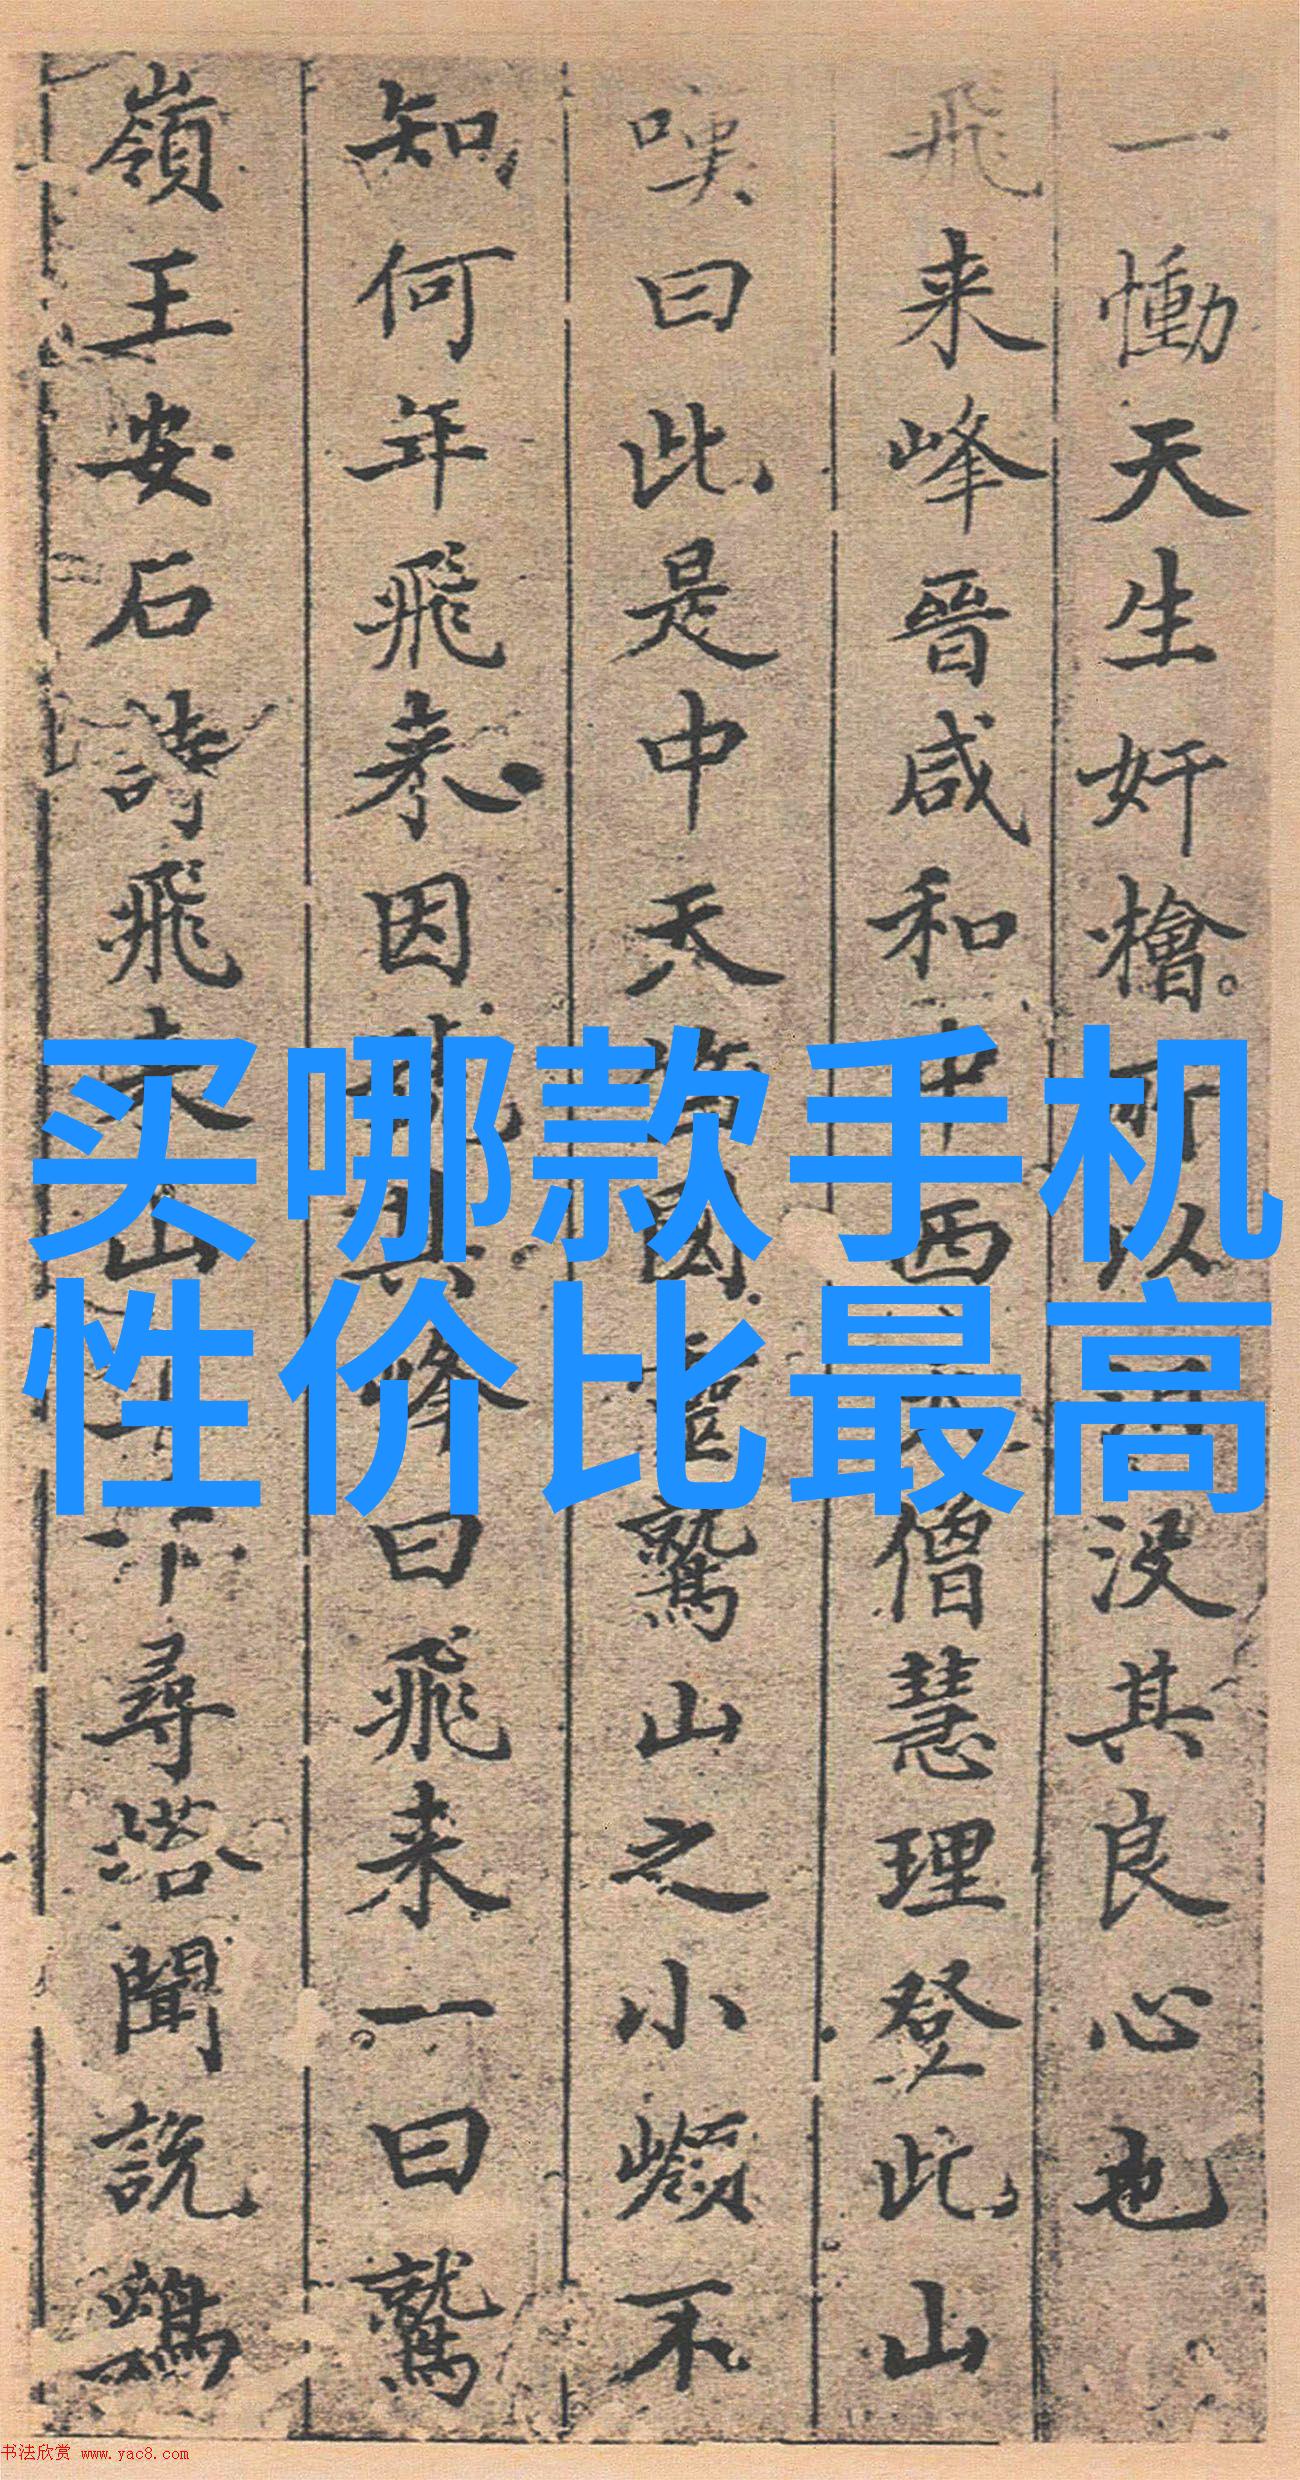 一慟天生奸檜所以沒其良心也
飛来峰晉咸和中西僧慧理登此山
嘆曰此是中天國靈鷲山之小嶺不
知何年飛来因號其峰曰飛来一曰鷲
嶺王安石詩飛来山上千尋塔聞說鷄
买哪款手机
性价比最高
书法欣赏 www.yac8.com